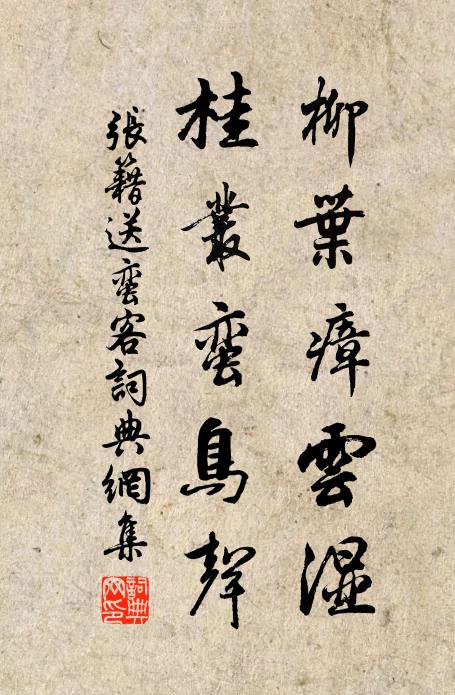 柳葉瘴雲濕
桂叢蛮鳥聲
張籍送蛮客詞典網集
詞典
网印